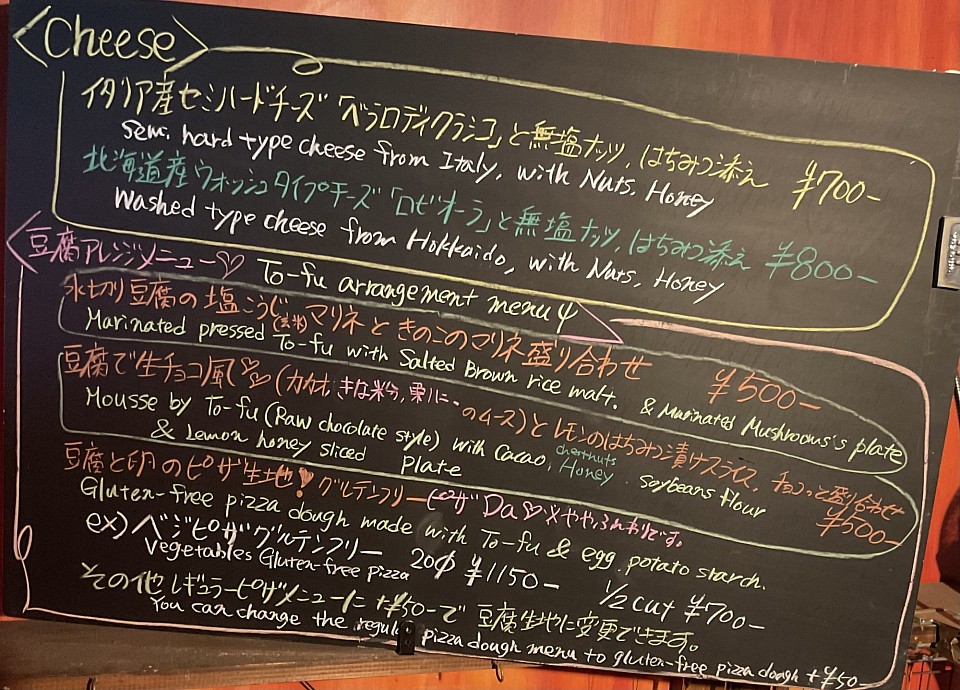 Cheese
イタリア産セミハードチーズ「ベラロディクラシコ」と無塩ナッツ,はちみつ添え ¥700-
Semi hard type cheese from Italy, with Nuts, Honey
北海道産ウォッシュタイプチーズ「ロビオーラ」と無塩ナッツ,はちみつ添え ¥800-
Washed type cheese from Hokkaido, with Nuts, Honey
豆腐アレンジメニュー♡ To-fu arrangement menu
水切り豆腐の塩こうじ(玄米)マリネときのこのマリネ盛り合わせ ¥500-
Marinated pressed To-fu with Salted Brown rice malt. & Marinated Mushrooms's plate
豆腐で生チョコ風♡♡(カカオ,きな粉,のムース)とレモンのはちみつ漬けスライス, チョコっと盛り合わせ ¥500-
Mousse by To-fu (Raw chocolate style) with Cacao, chestnuts Honey. Soybeans flour
& Lemon honey sliced Plate
豆腐と卵のピザ生地! グルテンフリーピザDa♡※ややふんわりです。
Gluten-free pizza dough made with To-fu & egg. potato starch.
ex) ベジピザグルテンフリー 20Φ ¥1150- 1/2 cut ¥700-
Vegetables Gluten-free pizza
その他レギュラーピザメニューに+¥50-で豆腐生地に変更できます。
You can change the regular pizza dough menu to gluten-free pizza dough +¥50-